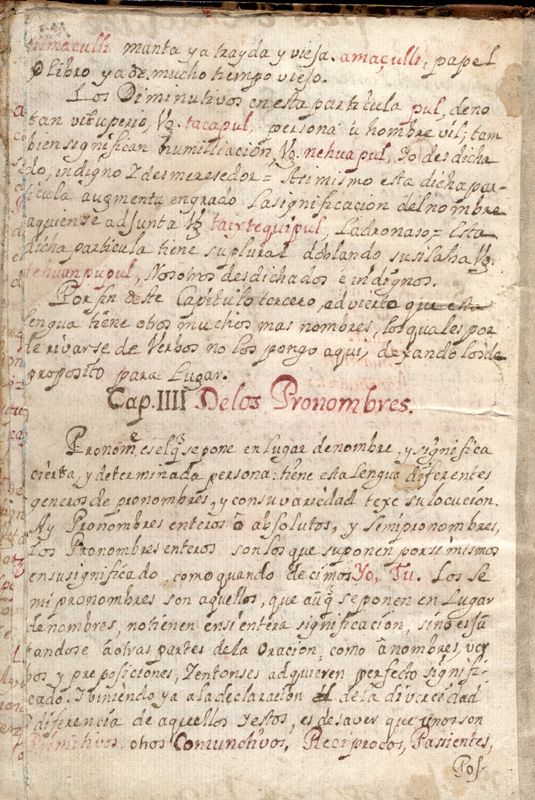 tilmaçulli manta ya trayda y vieja. amaçulli, papel
o libro ya de mucho tiempo viejo.
Los Diminutivos en esta particula pul, deno
tan vituperio, Vg. tacapul, persona ù hombre vil; tam
bien significan humilliacion Vg. nehuapul, Yo desdicha
do, indigno Z desmeresedor = Asi mismo esta dicha par-
ticula augmenta engrado la significacion del nombre
aquien se adjunta Vg taixtequipul, Ladronaso = Esta
dicha particula tiene su plural doblando su silaba Vg.
tehuanpupul, Nosotros desdichados è indignos.
Por fin deste Capitulo tercero, advierto que esta
lengua tiene otros muchos mas nombres, los quales por
derivarse de Verbos no los pongo aqui, dexandolos de
proposito para Lugar.
Cap. IIII De los Pronombres.
Pronom.e es el q̃ se pone en Lugar de nombre, y significa
cierta, y determinada persona: tiene esta Lengua diferentes
generos de pronombres, y con su variedad texe su locucion.
Ay Pronombres enteros ò absolutos, y Semipronombres,
Los Pronombres enteros son los que suponen por si mismos
en su significado, como quando decimos Yo, Tu. Los Se
mipronombres son aquellos, que auñq̃ se ponen en Lugar
de nombres, no tienen en si entera significacion, sino es jũ
tandose à otras partes de la Oracion, como à nombres, ver
bos y preposiciones, Z entonses adquieren perfecto signifi-
cado. I viniendo ya a la declaracion de la divercidad
I diferencia de aquellos y estos, es de saver que unos son
Primitivos otros Comunctivos, Reciprocos, Passientes,
Pos-